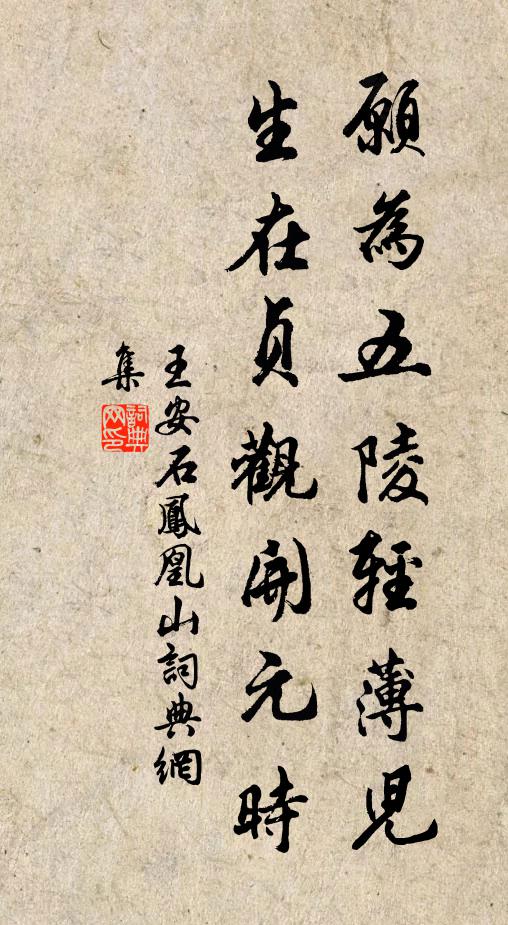 願為五陵輕薄兒
生在貞觀開元時
王安石鳳凰山詞典網
集
詞典网印